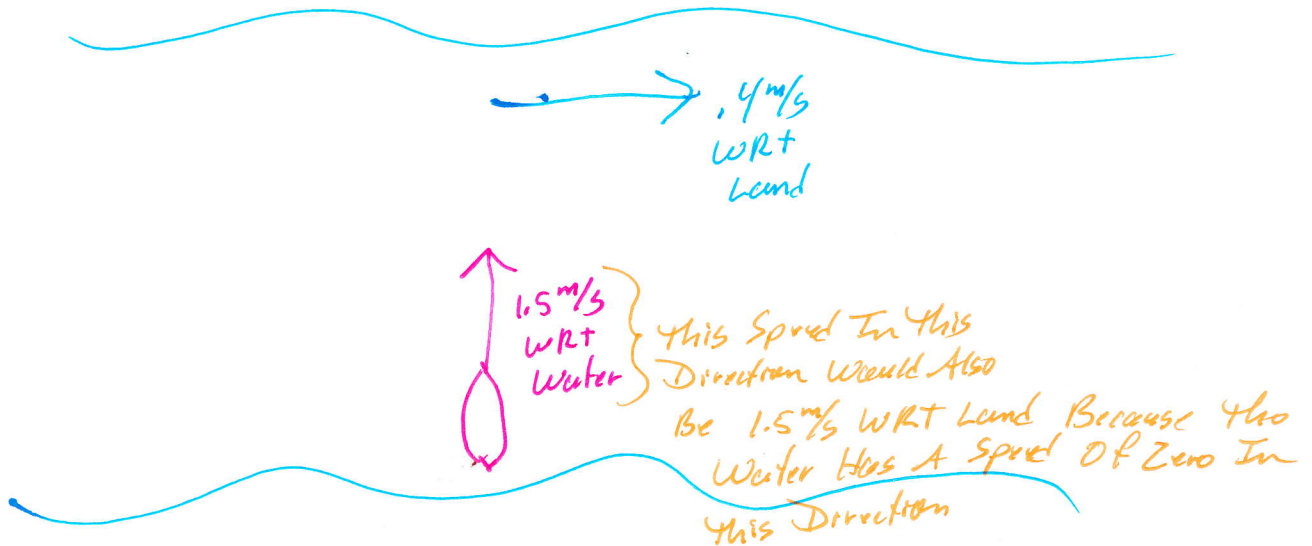 .4 m/s
WRT
Land
1.5 m/s
WRT
Water
This Speed In This
Direction Would Also
Be 1.5 m/s WRT Land Because the
Water Has A Speed Of Zero In
This Direction